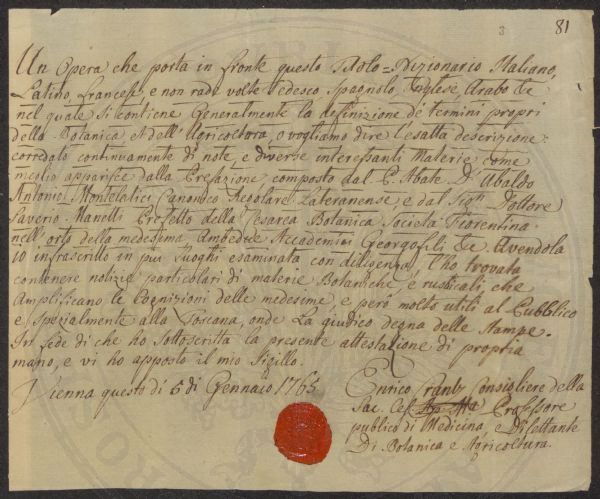 3 81
Un Opera che porta in fronte questo Titolo = Dizionario Italiano,
Latino, Francese, e non rade volte Tedesco Spagnolo Inglese Arabo &c
nel quale si contiene Generalmente la definizione de termini propri
della Botanica et dell' Agricoltura, o vogliamo dire l'esatta descrizione:
corredato continuamente di note, e diverse interessanti Materie come
meglio apparisce dalla Prefazione, composto dal P. Abate D. Ubaldo
Antonio Montelatici Canonico Regolare Lateranense, e dal Sign. Dottore
Saverio Manetti Prefetto della Cesarea Botanica Società Fiorentina
nell' orto della medesima Ambedue Accademici Georgofili &c Avendola
io infrascritto in piu Luoghi esaminata con diligenza, l'ho trovata
contenere notizie particolari di materie Botaniche, e rusticali, che
Amplificano le Cognizioni delle medesime, e però molto utili al Pubblico
e spezialmente alla Toscana, onde La giudico degna delle Stampe.
In fede di che ho Sottoscritta la presente attestazione di propria
mano, e vi ho apposto il mio Sigillo.
Vienna questo dì 5 di Gennaio 1765
Enrico Crantz Consigliere della
Sac. Ces. Professore
publico di Medicina, e Dilettante
Di Botanica e Agricoltura.